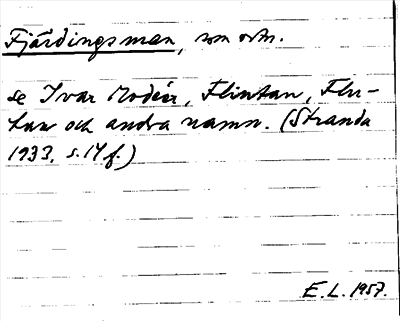 Fjärdingsman, som ortn.
se Ivar Modéer, Flintan, Flu-
tan och andra namn. (Stranda
1933, s. 14 f.)
E. L. 1957.